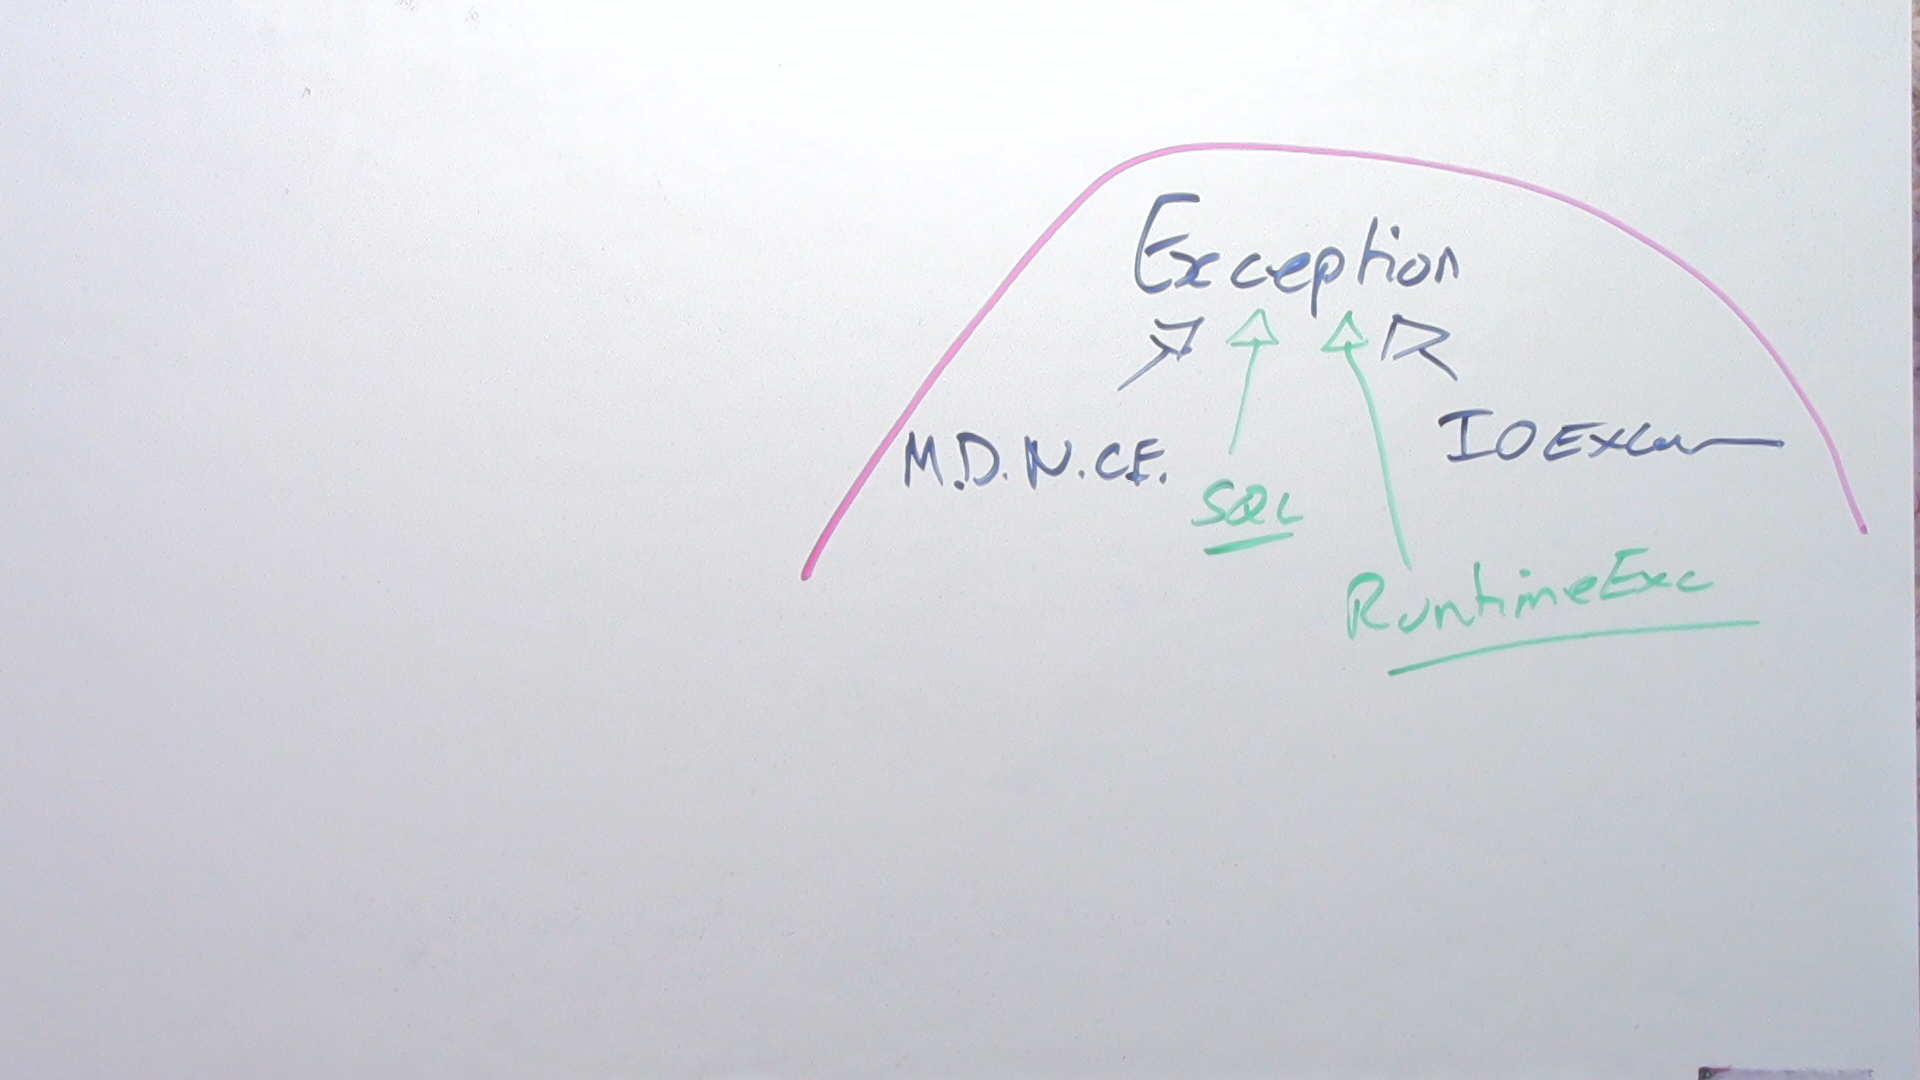 Exception
M.D.N.C.E.
IOExc
SQL
RuntimeExc